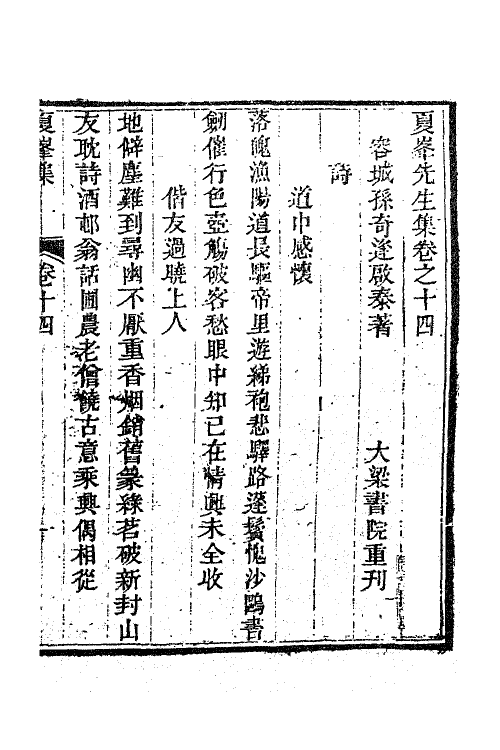 夏峯先生集卷之十四
容城孫奇逢啟泰著　大梁書院重刊
詩
道中感懷
落魄漁陽道長驅帝里遊綈袍悲驛路蓬鬢愧沙鷗書
劒催行色壺觴破客愁眼中知已在情興未全收
偕友過曉上人
地僻塵難到尋幽不厭重香烟銷舊篆綠茗破新封山
友耽詩酒邨翁話圃農老僧饒古意乘興偶相從
夏峯集
卷十四